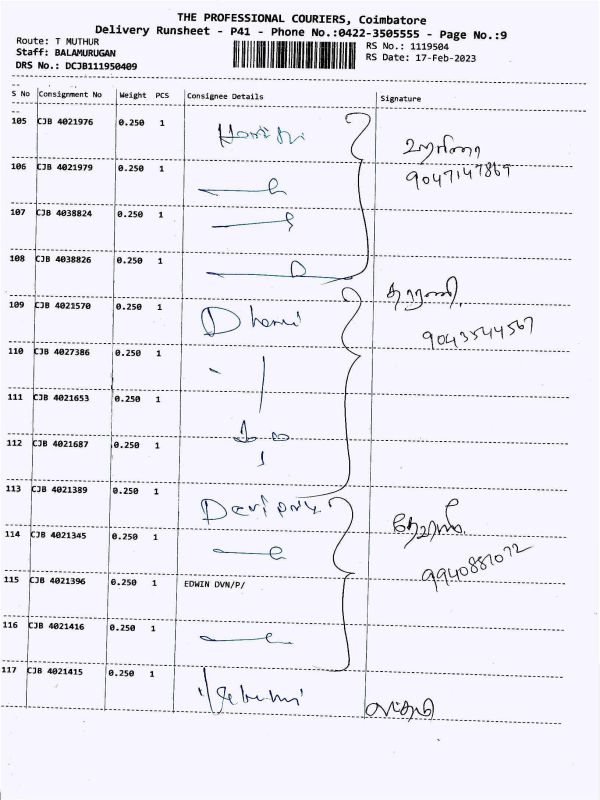 THE PROFESSIONAL COURIERS, Coimbatore
Delivery Runsheet - P41 - Phone No.:0422-3505555 - Page No.:9
Route: T MUTHUR
RS No.: 1119504
Staff: BALAMURUGAN
RS Date: 17-Feb-2023
DRS No.: DCJB111950409
S No Consignment No Weight PCS Consignee Details Signature
105 CJB 4021976 0.250 1
106 CJB 4021979 0.250 1 9047147867
107 CJB 4038824 0.250 1
108 CJB 4038826 0.250 1
தாரணி
109 CJB 4021570 0.250 1 Dharni 9043544567
110 CJB 4027386 0.250 1
111 CJB 4021653 0.250 1
112 CJB 4021687 0.250 1
113 CJB 4021389 0.250 1
114 CJB 4021345 0.250 1 9940887072
115 CJB 4021396 0.250 1 EDWIN DVN/P/
116 CJB 4021416 0.250 1
117 CJB 4021415 0.250 1